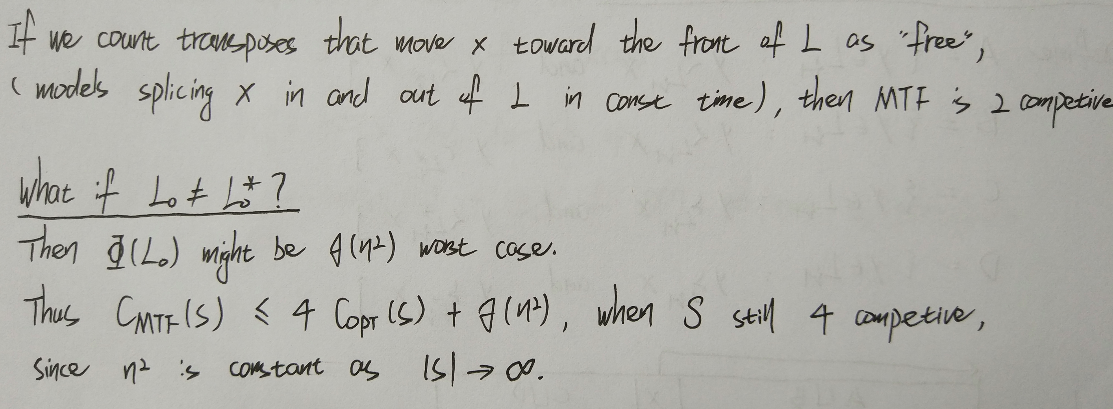 If we count transposes that move x toward the front of L as "free",
(models splicing x in and out of L in const time), then MTF is 2 competive
What if L₀ ≠ L₀*?
Then Φ(L₀) might be θ(n²) worst case.
Thus C_MTF(S) ≤ 4 C_OPT(S) + θ(n²), when S still 4 competive,
since n² is constant as |S| → ∞.